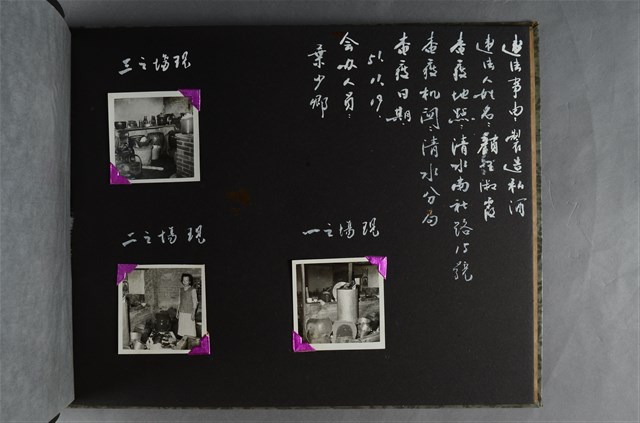 違法事由：製造私酒
違法人姓名：淑霞
查獲地點：清水南社路15號
查獲机関：清水分局
查獲日期：
51.11.19.
会办人員：
葉少卿
現場之三
現場之一
現場之二